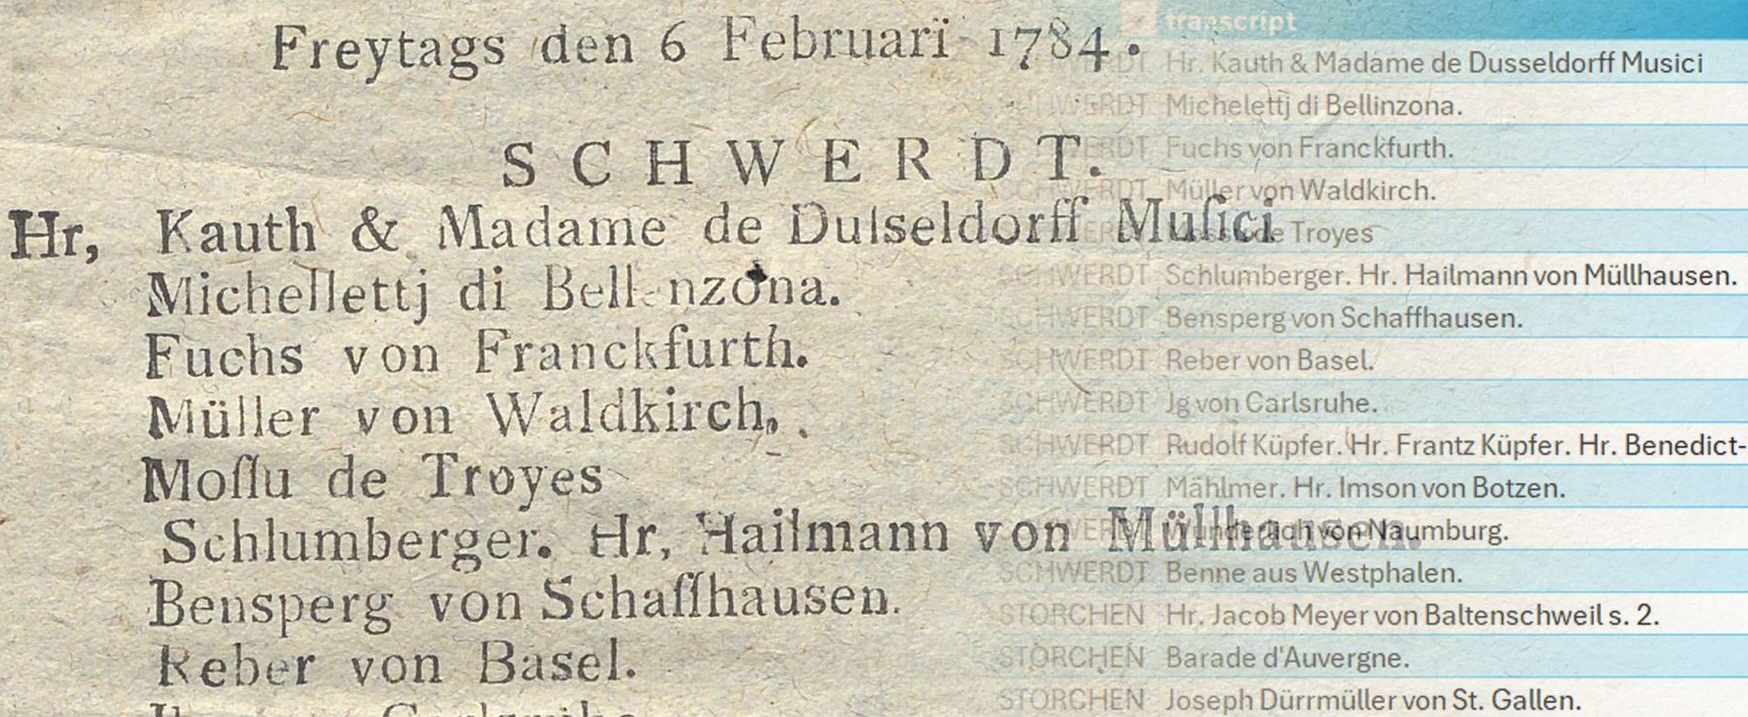 Freytags den 6 Februarï 1784.
SCHWERDT.
Hr, Kauth & Madame de Duſseldorff Muſici
Michellettj di Bell nzona.
Fuchs von Franckfurth.
Müller von Waldkirch,.
Moſſu de Troyes
Schlumberger. Hr, Hailmann von Müllhausen.
Bensperg von Schaffhausen.
Reber von Basel.
transcript
SCHWERDT Hr. Kauth & Madame de Dusseldorff Musici
SCHWERDT Michelettj di Bellinzona.
SCHWERDT Fuchs von Franckfurth.
SCHWERDT Müller von Waldkirch.
de Troyes
SCHWERDT Schlumberger. Hr. Hailmann von Müllhausen.
SCHWERDT Bensperg von Schaffhausen.
SCHWERDT Reber von Basel.
SCHWERDT Jg von Carlsruhe.
SCHWERDT Rudolf Küpfer. Hr. Frantz Küpfer. Hr. Benedict-
SCHWERDT Mählmer. Hr. Imson von Botzen.
von Naumburg.
SCHWERDT Benne aus Westphalen.
STORCHEN Hr. Jacob Meyer von Baltenschweil s. 2.
STORCHEN Barade d'Auvergne.
STORCHEN Joseph Dürrmüller von St. Gallen.